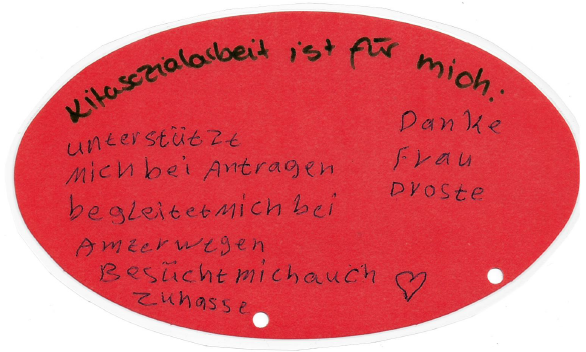 Kitasozialarbeit ist für mich:
unterstützt
mich bei Antragen
begleitet mich bei
Amterwegen
Besücht mich auch
zuhasse
Danke
Frau
Droste